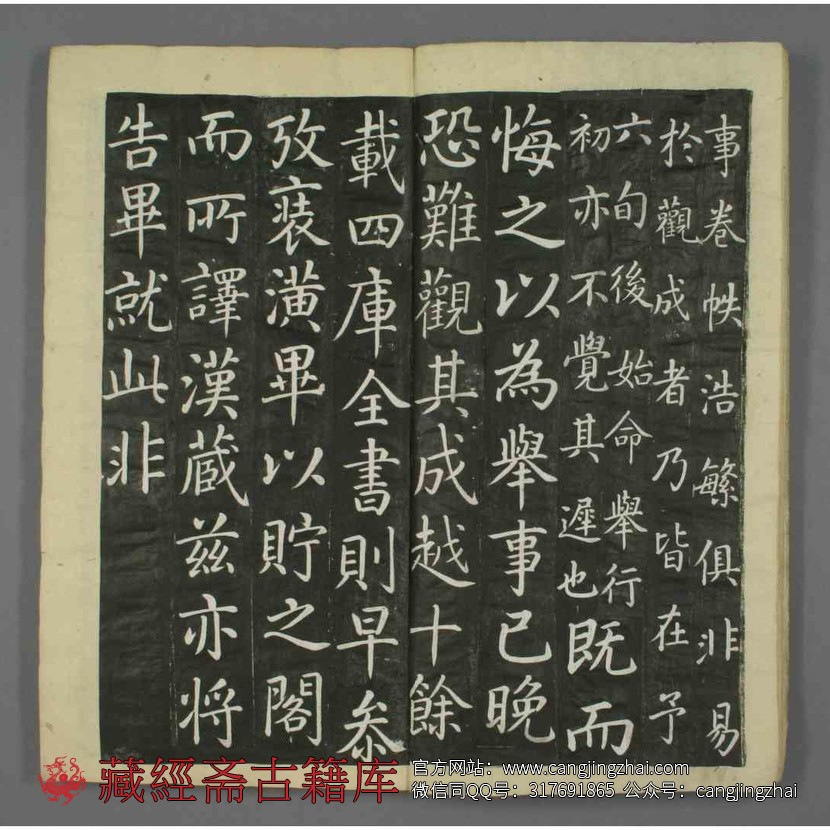 事卷帙浩繁俱非易
於觀成者乃皆在予
六旬後始命舉行
初亦不覺其遲也既而
悔之以為舉事已晚
恐難觀其成越十餘
載四庫全書則早叅
攷裘潢畢以貯之閣
而所譯漢蔵兹亦将
告畢就此非
藏經斋古籍库
官方网站：www.cangjingzhai.com
微信同QQ号：317691865 公众号：cangjingzhai